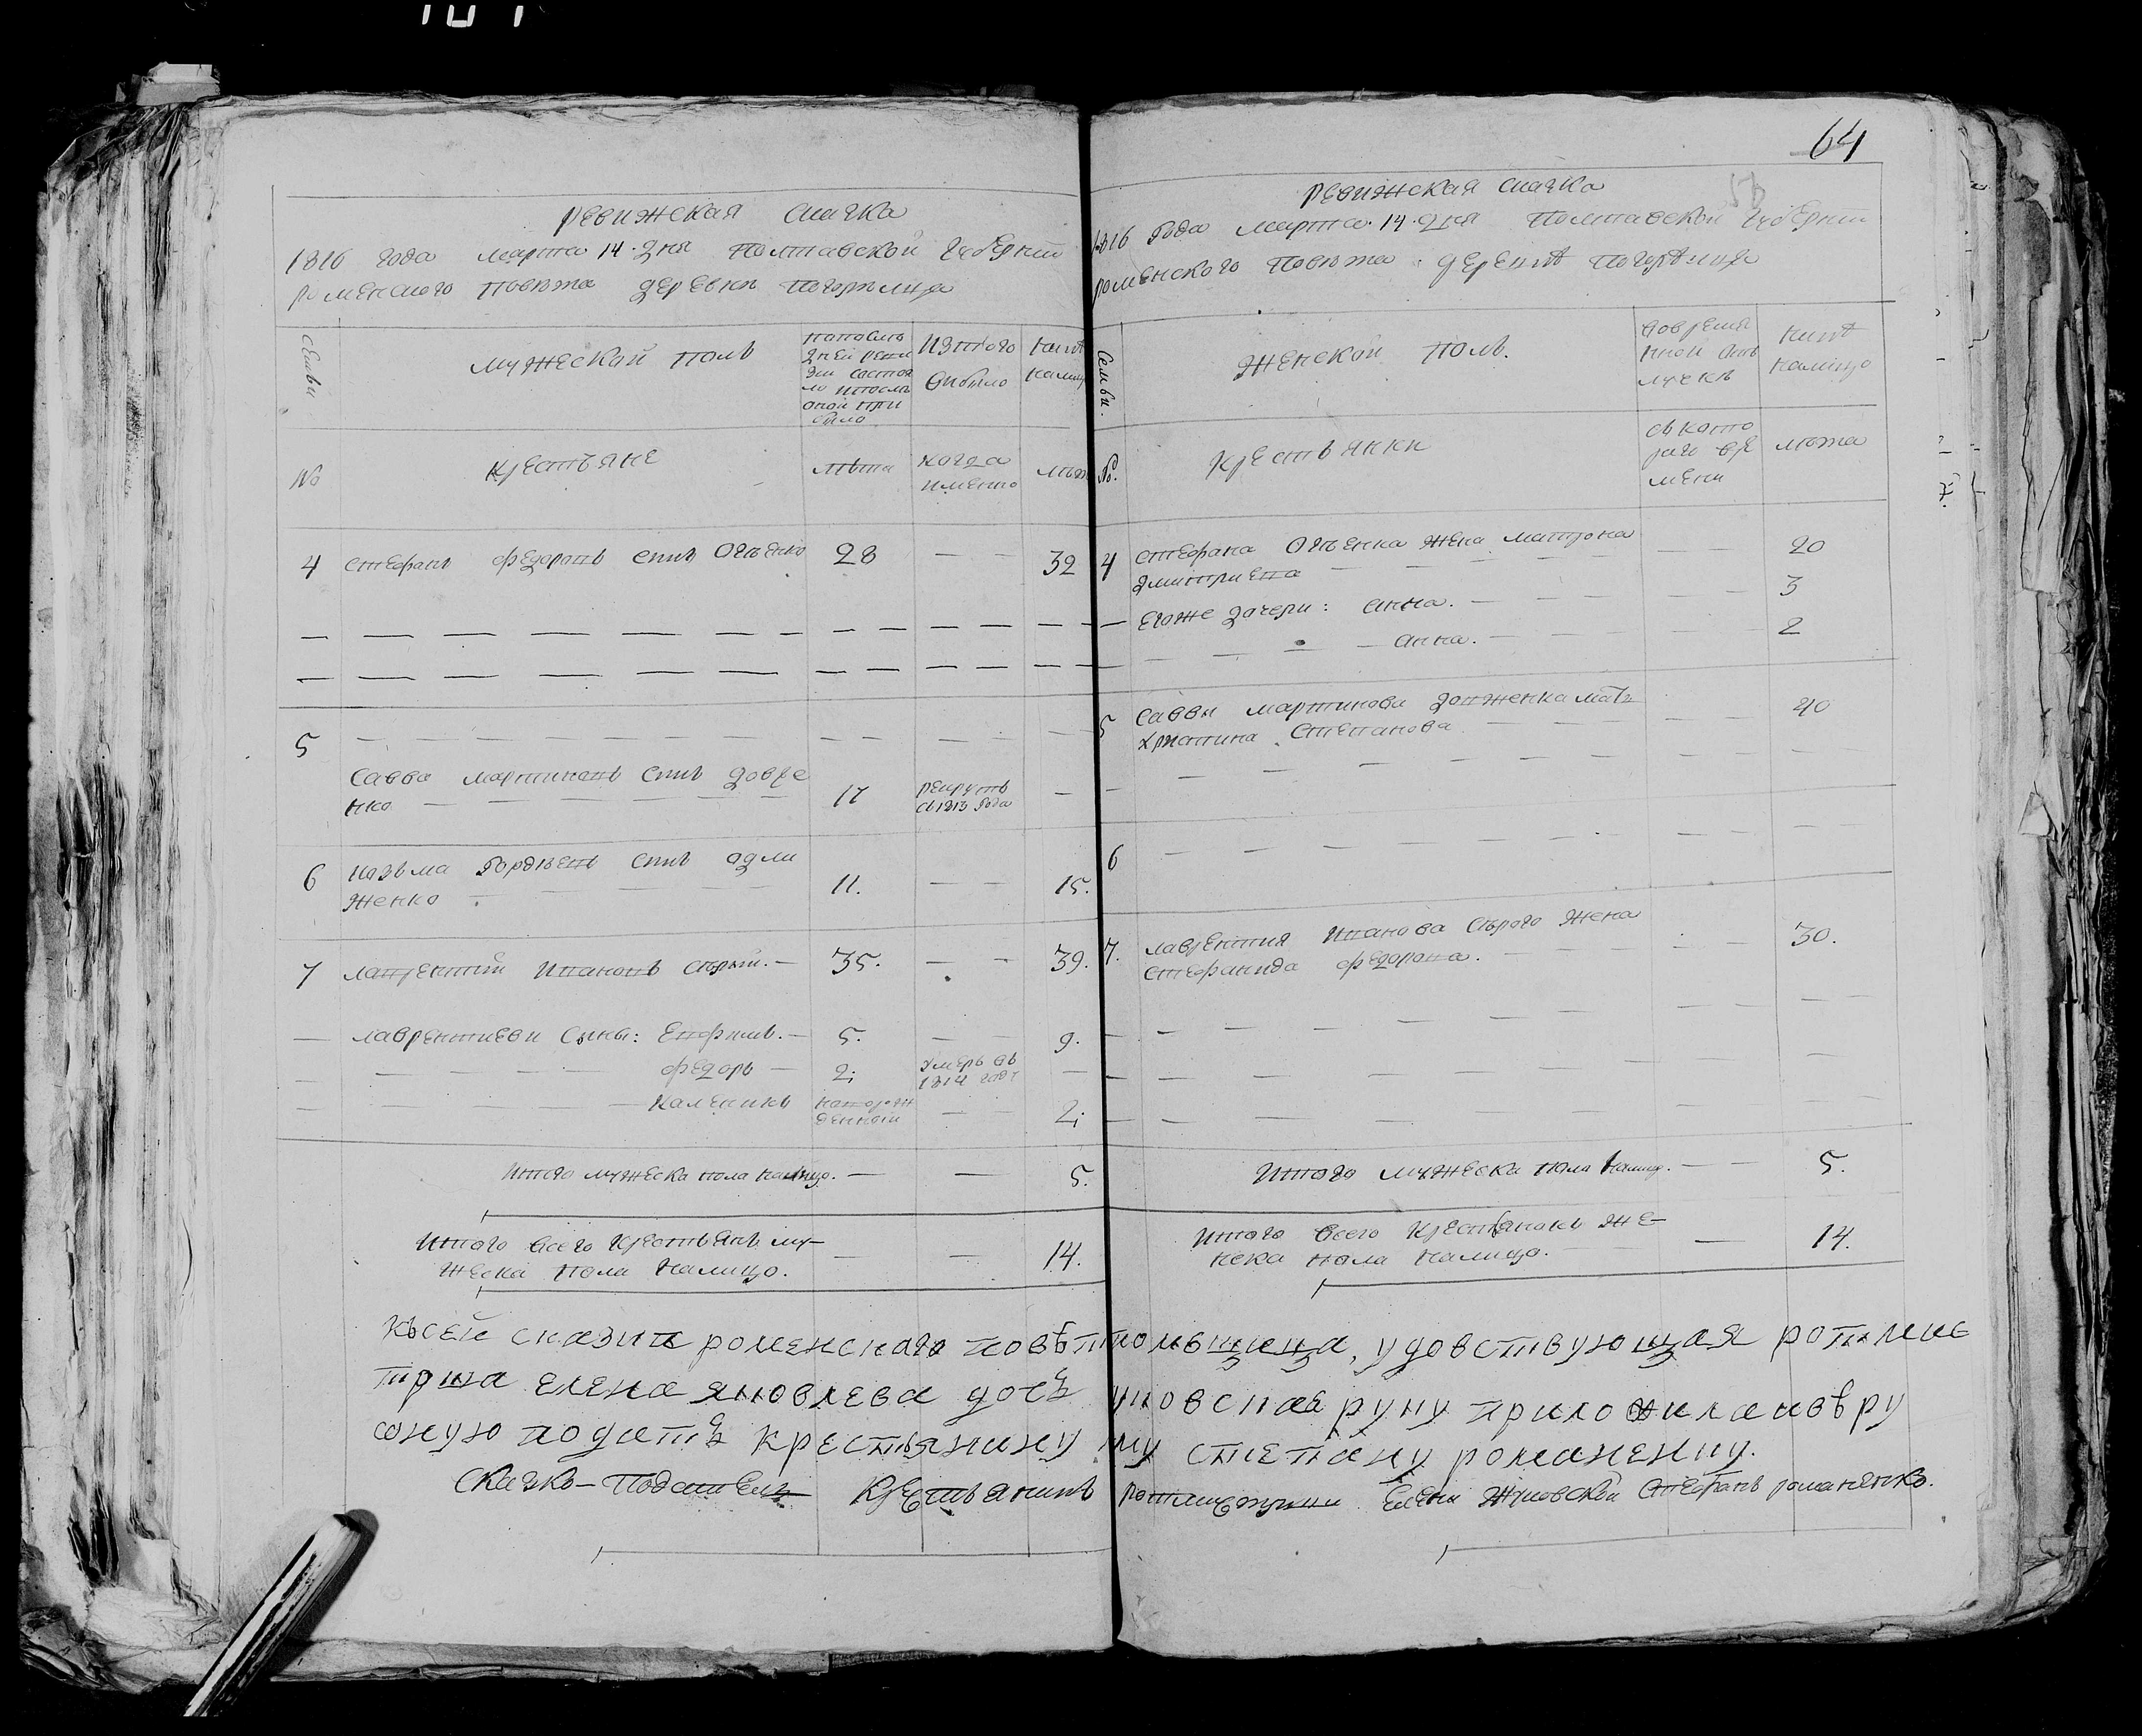 64
Ревижская скажка
1816 года марта 14 дня Полтавской губернии
Роменского повѣта деревни Погорѣлица
Семьи
Мужеской полъ
Изтого
выбыло
№
Крестьяне
лѣта
когда
именно
4 Стефанъ Федоровъ сынъ 28 — — 32
5
Савва Мартиновъ сынъ Довже
нко 17 рекрутъ
съ 1813 года
6 Козьма Гордѣевъ сынъ
женко 11. — — 15.
7 Лаврентий Ивановъ Сѣрый. — 35. — — 39.
— Лаврентиеви сыны: Евфимъ. — 5. — — 9.
Федоръ — 2; умеръ въ
1814 годѣ
Каленикъ новорож
денный — — 2;
Итого мужеска пола налицо. — — 5.
Итого всего крестьянъ му-
жеска пола налицо. — — 14.
Ревижская скажка
1816 года марта 14 дня Полтавской губернии
Роменского повѣта деревнѣ Погорѣлица
Семьи.
Женской полъ.
Вовремян
ной отъ
лучкѣ
Нинѣ
налицо
№.
Крестьянки
съ кото
раго вре
мени
лѣта
4 Стефана жена Матрона
Дмитриева 20
— Егоже дочери: Анна. — 3
Анна. — 2
5 Саввы Мартинова Довженка мать
Христина Степанова 40
6
7. Лаврентия Иванова Сѣрого жена
Стефанида Федорова. 30.
Итого мужеска пола налиц. — — 5.
Итого всего крестьянокъ же-
нска пола налицо. — 14.
Къ сей сказки роменскаго повѣт помѣщица, удовствующая ротмис
трша Елена Яковлева дочь руку приложила и вѣру
оную подать крестьянину му Степану Романенку.
Скажко-Подавецъ крестьянинъ ротмистрши Елени Стефанъ Романенко.